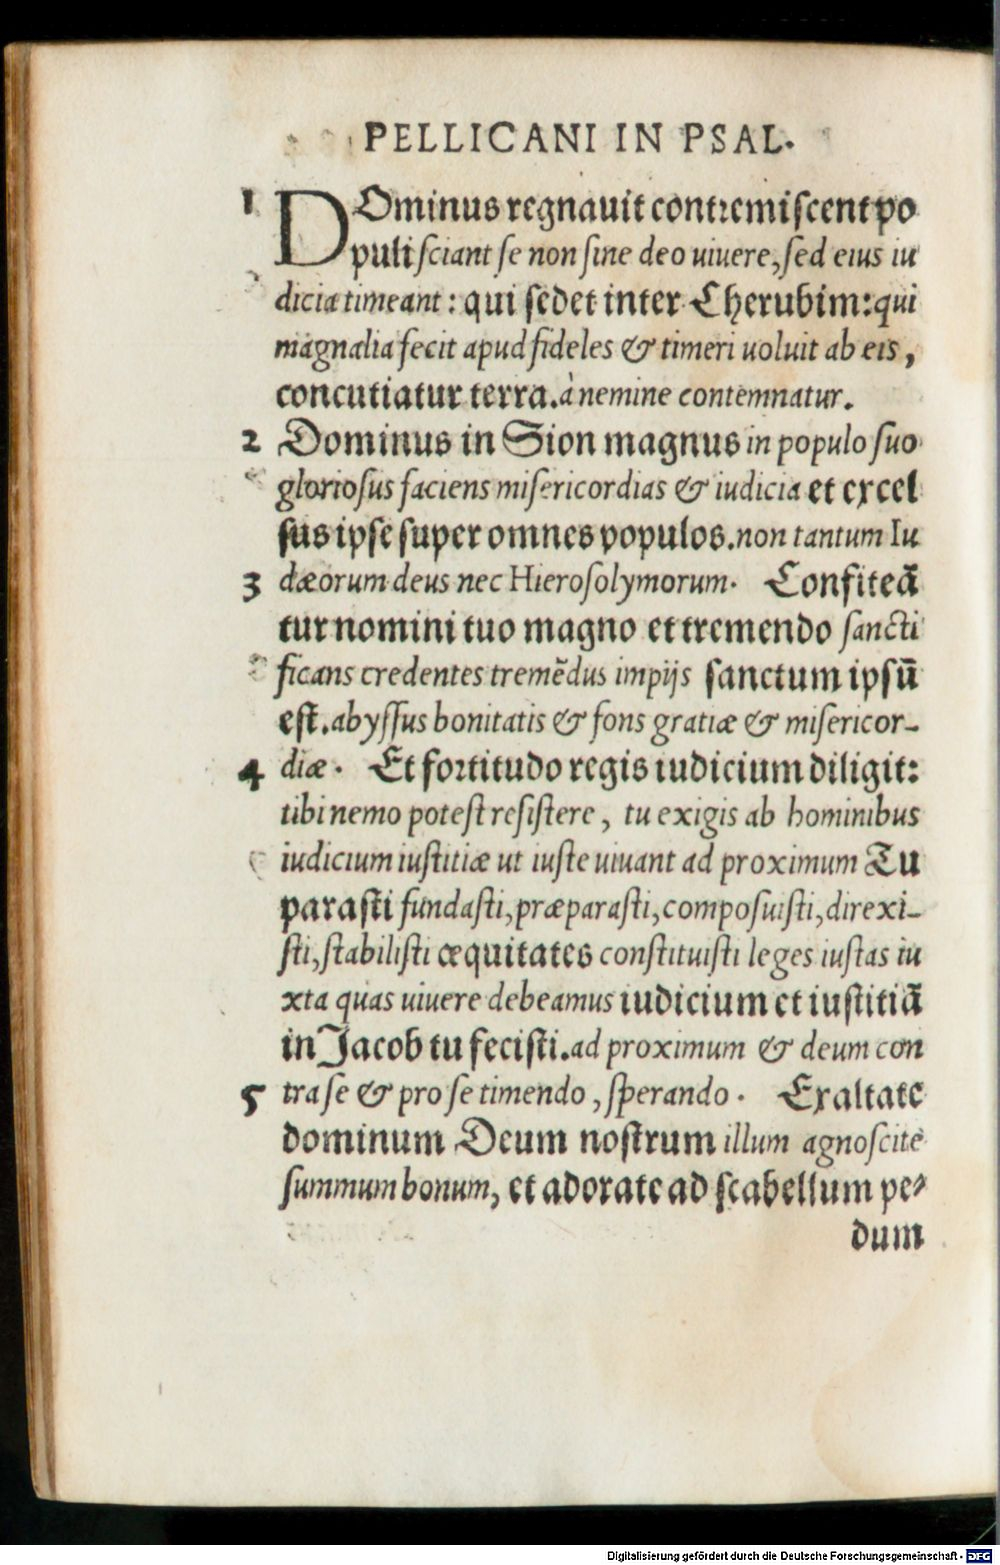 PELLICANI IN PSAL.
1 DOminus regnauit contremiscent po
puli sciant se non sine deo uiuere, sed eius iu
diciæ timeant: qui sedet inter Cherubim: qui
magnalia fecit apud fideles & timeri uoluit ab eis,
concutiatur terra. à nemine contemnatur.
2 Dominus in Sion magnus in populo suo
gloriosus faciens misericordias & iudicia et excel
sus ipse super omnes populos. non tantum Iu
3 dæorum deus nec Hierosolymorum. Confiteã
tur nomini tuo magno et tremendo sancti
ficans credentes tremẽdus impijs sanctum ipsũ
est. abyssus bonitatis & fons gratiæ & misericor-
4 diæ. Et fortitudo regis iudicium diligit:
tibi nemo potest resistere, tu exigis ab hominibus
iudicium iustitiæ ut iuste uiuant ad proximum Tu
parasti fundasti, præparasti, composuisti, direxi-
sti, stabilisti æquitates constituisti leges iustas iu
xta quas uiuere debeamus iudicium et iustitiã
in Jacob tu fecisti. ad proximum & deum con
5 tra se & pro se timendo, sperando. Exaltate
dominum Deum nostrum illum agnoscite
summum bonum, et adorate ad scabellum pe-
dum
Digitalisierung gefördert durch die Deutsche Forschungsgemeinschaft - DFG